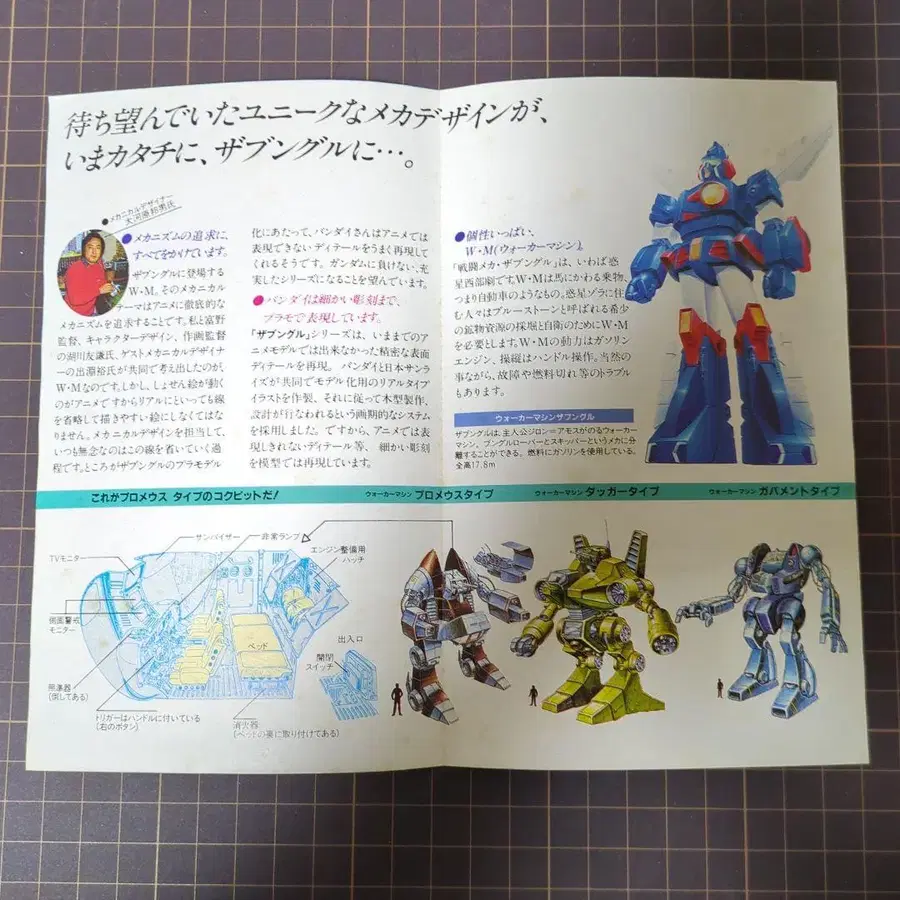 待ち望んでいたユニークなメカデザインが、
いまカタチに、ザブングルに…。
●メカニカルデザイナー
大河原邦男氏
●メカニズムの追求に、
すべてをかけています。
ザブングルに登場する
W・M。そのメカニカル
テーマはアニメに徹底的な
メカニズムを追求することです。私と富野
監督、キャラクターデザイン、作画監督
の湖川友謙氏、ゲストメカニカルデザイナ
ーの出渕裕氏が共同で考え出したのが、
W・Mなのです。しかし、しょせん絵が動く
のがアニメですからリアルにといっても線
を省略して描きやすい絵にしなくてはな
りません。メカニカルデザインを担当して、
いつも無念なのはこの線を省いていく過
程です。ところがザブングルのプラモデル
化にあたって、バンダイさんはアニメでは
表現できないディテールをうまく再現して
くれるそうです。ガンダムに負けない、充
実したシリーズになることを望んでいます。
●バンダイは細かい彫刻まで、
プラモで表現しています。
「ザブングル」シリーズは、いままでのア
ニメモデルでは出来なかった精密な表面
ディテールを再現。バンダイと日本サンラ
イズが共同でモデル化用のリアルタイプ
イラストを作製、それに従って木型製作、
設計が行なわれるという画期的なシステム
を採用しました。ですから、アニメでは表
現しきれないディテール等、細かい彫刻
を模型では再現しています。
●個性いっぱい、
W・M(ウォーカーマシン)。
「戦闘メカ・ザブングル」は、いわば惑
星西部劇です。W・Mは馬にかわる乗物、
つまり自動車のようなもの。惑星ゾラに住
む人々はブルーストーンと呼ばれる希少
の鉱物資源の採掘と自衛のためにW・M
を必要とします。W・Mの動力はガソリン
エンジン、操縦はハンドル操作。当然の
事ながら、故障や燃料切れ等のトラブル
もあります。
ウォーカーマシンザブングル
ザブングルは、主人公ジロン=アモスがのるウォーカー
マシン、ブングルローバーとスキッパーというメカに分
離することができる。燃料にガソリンを使用している。
全高17.8m
これがプロメウス タイプのコクピットだ!
ウォーカーマシン プロメウスタイプ
ウォーカーマシン ダッガータイプ
ウォーカーマシン ガバメントタイプ
サンバイザー
非常ランプ
TVモニター
エンジン整備用
ハッチ
側面警戒
モニター
ベッド
出入口
開閉
スイッチ
照準器
(倒してある)
トリガーはハンドルに付いている
(右のボタン)
消火器
(ベッドの裏に取り付けてある)